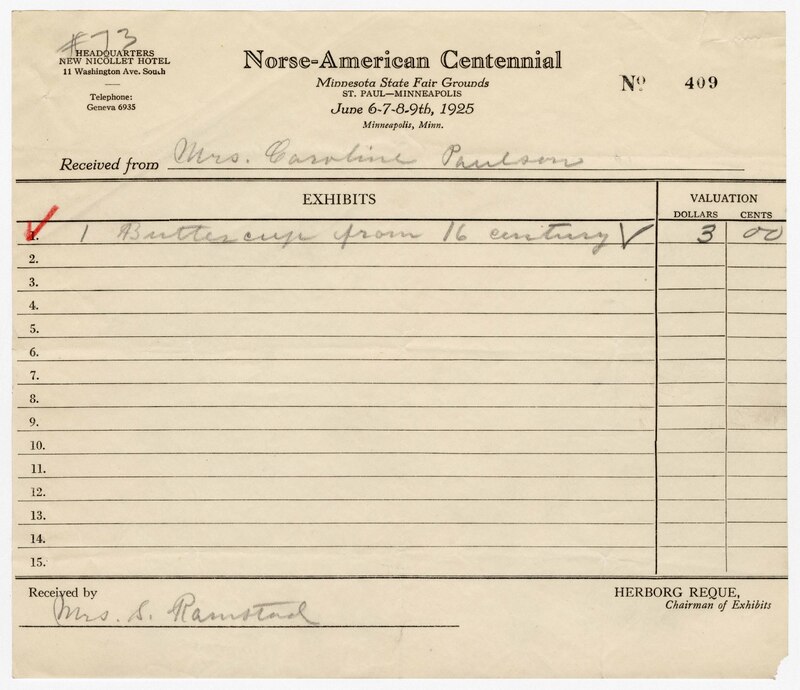 #73
HEADQUARTERS
NEW NICOLLET HOTEL
11 Washington Ave. South
Telephone:
Geneva 6935
Norse-American Centennial
Minnesota State Fair Grounds
ST. PAUL—MINNEAPOLIS
June 6-7-8-9th, 1925
Minneapolis, Minn.
Nº 409
Received from Mrs. Caroline Paulson
EXHIBITS
VALUATION
DOLLARS CENTS
1. 1 Buttercup from 16 century 3 00
2.
3.
4.
5.
6.
7.
8.
9.
10.
11.
12.
13.
14.
15.
Received by
Mrs. S. Ramstad
HERBORG REQUE,
Chairman of Exhibits